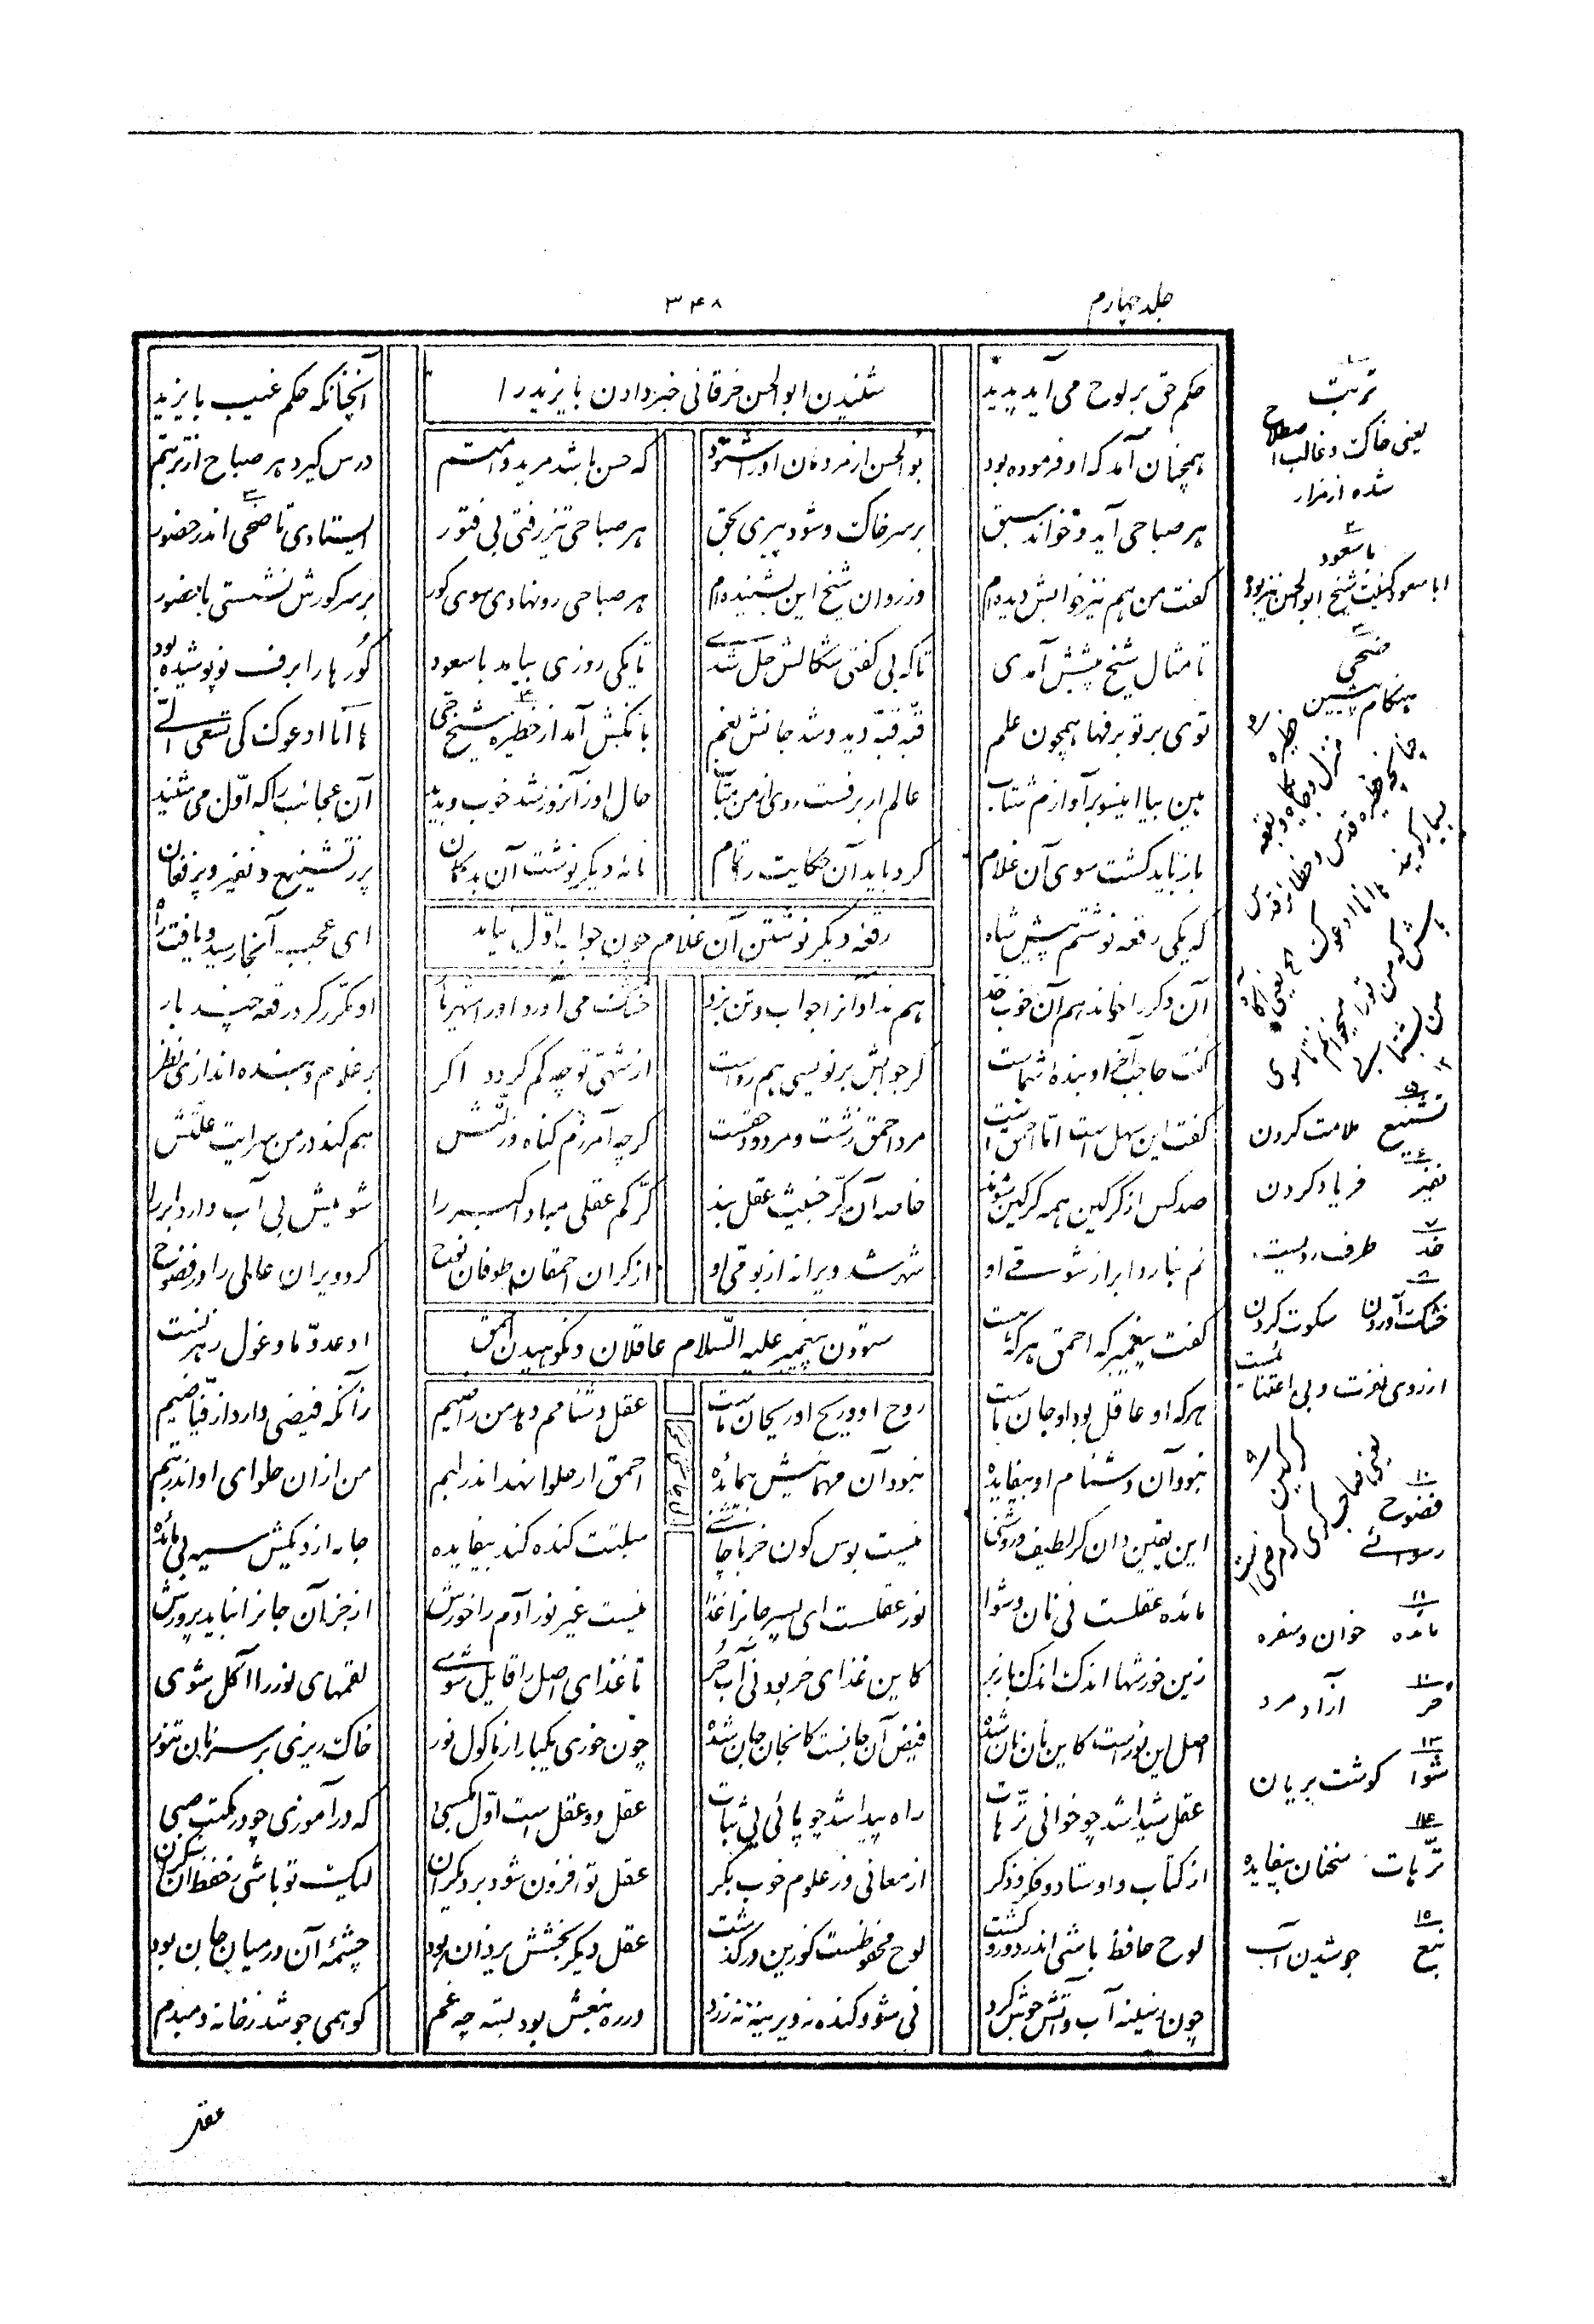 جلد چهارم
۳۴۸
حکم حق بر لوح می آید پدید
آنچنانکه حکم غیب بایزید
شنیدن ابوالحسن خرقانی خبر دادن بایزید را
همچنان آمد که او فرموده بود
بوالحسن از مردمان او را شنود
که حسن باشد مرید و امتم
درس گیرد هر صباح از تربتم
هر صباحی آید و خواند سبق
بر سر خاکت و شود پیری بحق
هر صباحی تیز رفتی بی فتور
ایستادی تا ضحی اندر حضور
گفت من هم نیز خوابش دیده‌ام
وز روان شیخ این بشنیده‌ام
هر صباحی رو نهادی سوی گور
بر سر گورش نشستی با حضور
تا مثال شیخ پیشش آمدی
تا که بی گفتی شکالش حل شدی
تا یکی روزی بیامد با سعود
گورها را برف نو پوشیده بود
توی بر تو برفها همچون علم
قبّه قبّه دید و شد جانش بغم
بانگش آمد از حظیره شیخ حی
ها انا ادعوک کی تسعی الی
هین بیا اینسو بر آوازم شتاب
عالم ار برفست روی از من متاب
حال او زآنروز شد خوب و بدید
آن عجائب را که اوّل می شنید
باز باید گشت سوی آن غلام
کرد باید آن حکایت را تمام
نامه دیگر نوشت آن بدگمان
پر ز تشنیع و نفیر و پر فغان
رقعه دیگر نوشتن آن غلام چون جواب اوّل نیامد
که یکی رقعه نوشتم پیش شاه
ای عجب آنجا رسید و یافت راه
آن دگر را خواند هم آن خوب خد
هم نداد آنرا جواب و تن بزد
خشک می آورد او را شهریار
او مکرّر کرد رقعه چند بار
گفت حاجب آخر او بنده شماست
گر جوابش برنویسی هم رواست
از شهی تو چه کم گردد اگر
بر غلام و بنده اندازی نظر
گفت این سهل است امّا احمق است
مرد احمق زشت و مردود حقست
گرچه آمرزم گناه و زلّتش
هم کند در من سرایت علّتش
صد کس از گرگین همه گرگین شوند
خاصه آن گرّ خبیث عقل بند
گرّ کم عقلی مبادا گبر را
شومیش بی آب دارد ابر را
نم نبارد ابر از شومی او
شهر شد ویرانه از بومی او
از گر آن احمقان طوفان نوح
کرد ویران عالمی را در فضوح
ستودن پیغمبر علیه السّلام عاقلان و نکوهیدن احمق
گفت پیغمبر که احمق هر که هست
او عدوّ ما و غول رهزنست
هر که او عاقل بود او جان ماست
روح او و ریح او ریحان ماست
عقل دشنامم دهد من راضیم
زآنکه فیضی دارد از فیّاضیم
نبود آن دشنام او بیفایده
نبود آن مهمانیش بی مائده
احمق ار حلوا نهد اندر لبم
من از آن حلوای او اندر تبم
این یقین دان گر لطیف و روشنی
نیست بوس کون خر را چاشنی
سبلتت گنده کند بیفایده
جامه از دیگش سیه بی مائده
مائده عقلست نی نان و شوا
نور عقلست ای پسر جانرا غذا
نیست غیر نور آدم را خورش
از جز آن جانرا نیاید پرورش
زین خورشها اندک اندک باز بر
کاین غذای خر بود نی آن حُر
تا غذای اصل را قابل شوی
لقمهای نور را آکل شوی
اصل این نور است کاین نان نان شده
فیض آن جانست کانجان جان شده
چون خوری یکبار از ماکول نور
خاک ریزی بر سر نان تنور
عقل شیدا شد چو خوانی ترّهات
راه پیدا شد چو پائی بی ثبات
عقل دو عقل است اوّل مکسبی
که در آموزی چو در مکتب صبی
از کتاب و اوستاد و فکر و ذکر
از معانی وز علوم خوب بکر
عقل تو افزون شود بر دیگران
لیک تو باشی ز حفظ آن گران
لوح حافظ باشی اندر دور و گشت
لوح محفوظست کو زین درگذشت
عقل دیگر بخشش یزدان بود
چشمهٔ آن در میان جان بود
چون ز سینه آب دانش جوش کرد
نی شود گنده نه دیرینه نه زرد
ور ره نبعش بود بسته چه غم
کو همی جوشد ز خانه دمبدم
۱ تربت
یعنی خاکست و غالبا اصطلاح
شده از مزار
۲ با سعود
ابا سعود کنیت شیخ ابوالحسن نیز بوده
۳ ضحی
هنگام پیشین
۵ تشنیع ملامت کردن
۶ نفیر فریاد کردن
۷ خد طرف رویست
۸ خشک آوردن سکوت کردن
از روی نفرت و بی اعتنایست
۱۰ فضوح
رسوائی
۱۱ مائده خوان و سفره
۱۲ حر آزاد مرد
۱۳ شوا گوشت بریان
۱۴ ترّهات سخنان بیفایده
۱۵ نبع جوشیدن آب
عقل